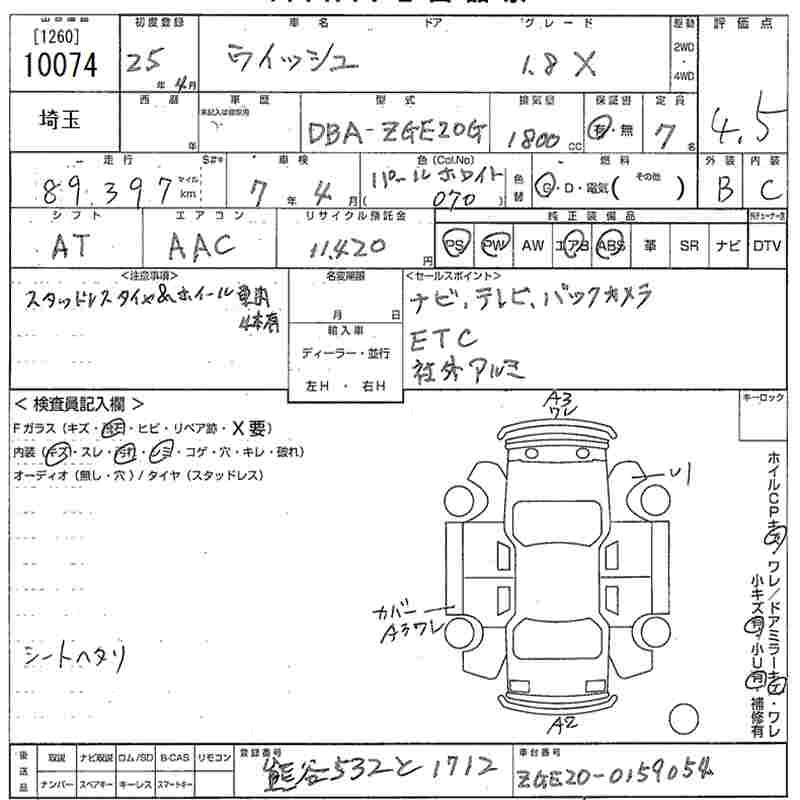 [1260] 初度登録 車名 ドア グレード 駆動 評価点
10074 25年4月 ウィッシュ 1.8 X 2WD・4WD 4.5
埼玉 西暦 年 車歴 未記入は自家用 型式 排気量 保証書 定員
DBA-ZGE20G 1800cc 有・無 7名
走行 S#* 車検 色(Col.No) 色替 燃料 外装 内装
89,397 マイル km 7年4月 パールホワイト 070 G・D・電気( その他 ) B C
シフト エアコン リサイクル預託金 純正装備品
AT AAC 11,420円 PS PW AW エアB ABS 革 SR ナビ DTV
<注意事項> 名変期限 <セールスポイント>
スタッドレスタイヤ&ホイール車内4本有 月 日 ナビ、テレビ、バックカメラ
輸入車 ETC
ディーラー・並行 社外アルミ
左H・右H
<検査員記入欄> キーロック
Fガラス(キズ・飛石・ヒビ・リペア跡・X要)
内装(キズ・スレ・汚れ・シミ・コゲ・穴・キレ・破れ)
オーディオ(無し・穴)/タイヤ(スタッドレス)
A3
ワレ
U1
カバー
A3ワレ
シートヘタリ
A2
ホイルCPキズ・ワレ/ドアミラーキズ・ワレ
小キズ有・小U有・補修有
後送品 取説 ナビ取説 ロム/SD B-CAS リモコン 登録番号 車台番号
ナンバー スペアキー キーレス スマートキー 熊谷532と1712 ZGE20-0159054